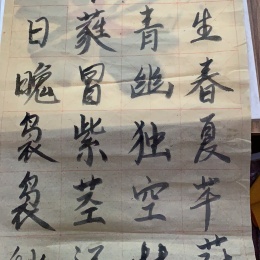 生春夏芊
青幽独空林
蕤冒紫茎
日晚袅袅